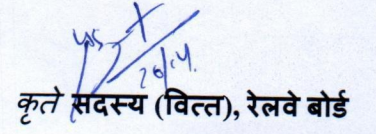 26/4
कृते सदस्य (वित्त), रेलवे बोर्ड